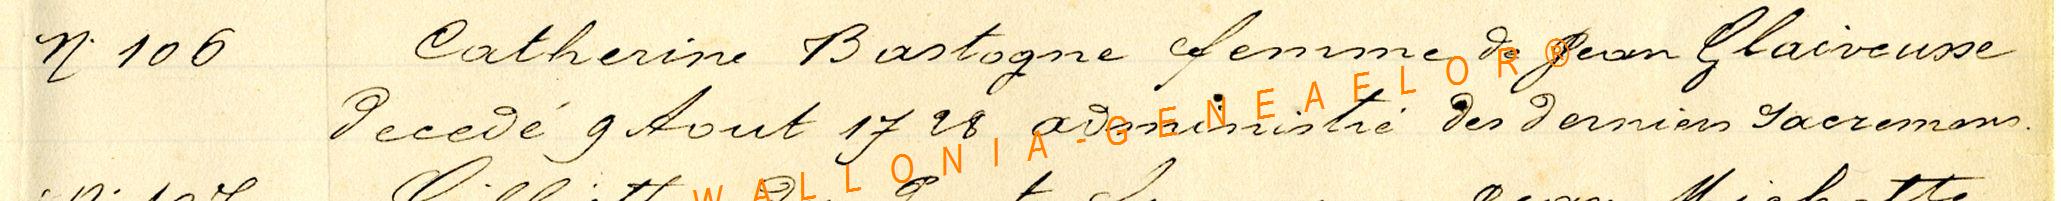 N. 106 Catherine Bastogne femme de Jean Glaiveusse
Decedé 9 Aout 1728 administré des derniers Sacremens.
WALLONIA-GENEAELOR®
N. 107 Jean Michotte